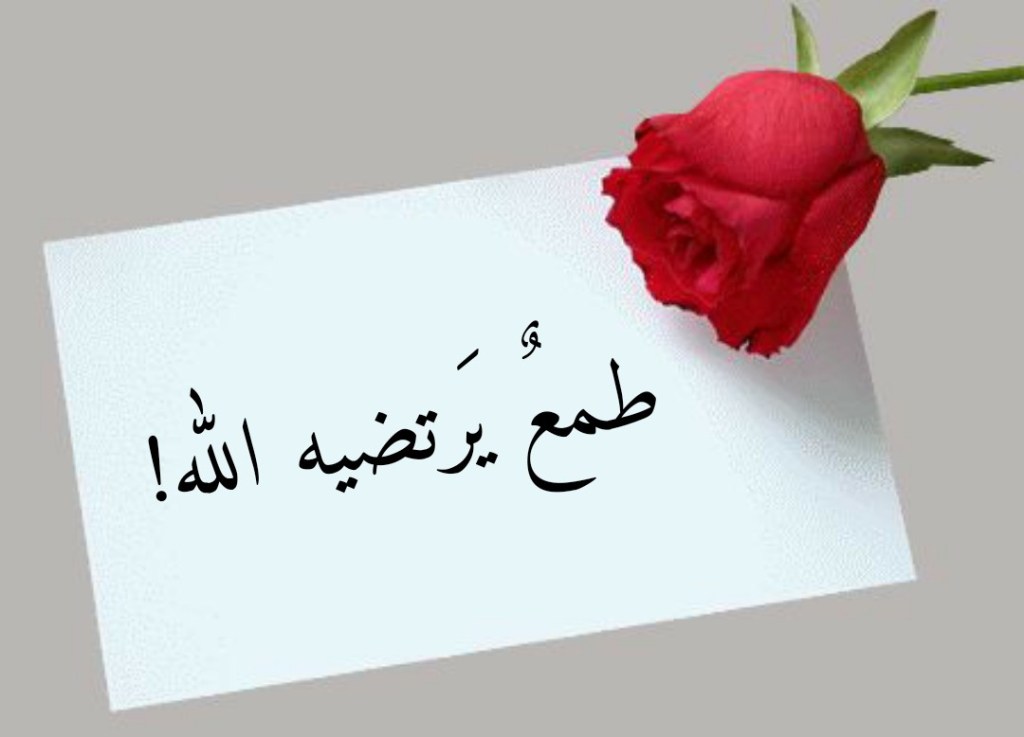 طمعٌ يَرتضيه الله!